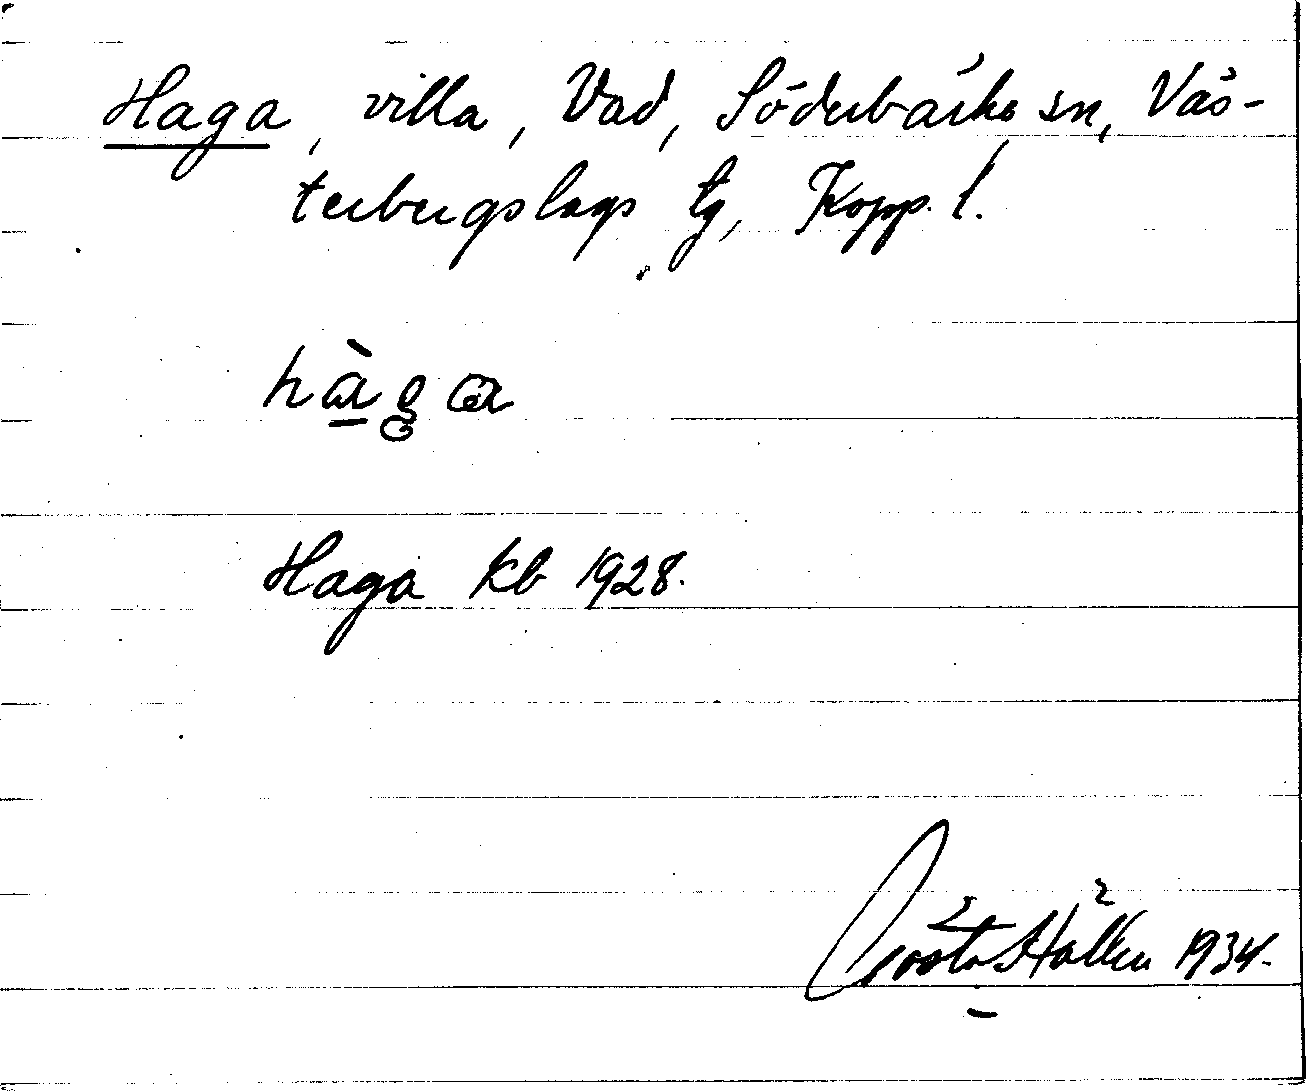 Haga, villa, Vad, Söderbärke sn, Väs-
terbergslags tg, Kopp. l.
hàga
Haga kb 1928.
Gösta Hållen 1934.